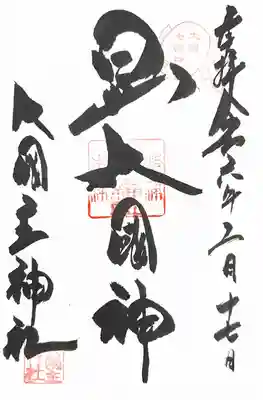 奉拝 令和六年二月十七日
日出大国神
大国主神社